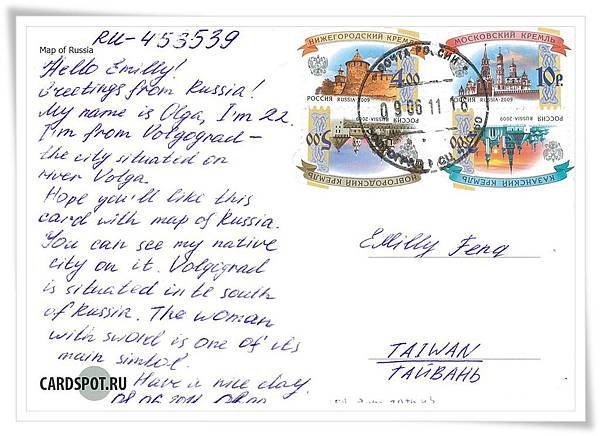 RU-453539
Map of Russia
Hello Emilly!
Greetings from Russia!
My name is Olga, I'm 22.
I'm from Volgograd –
the city situated on
river Volga.
Hope you'll like this
card with map of Russia.
You can see my native
city on it. Volgograd
is situated in te south
of Russia. The woman
with sword is one of its
main simbol.
Have a nice day.
CARDSPOT.RU
НИЖЕГОРОДСКИЙ КРЕМЛЬ
4.00
РОССИЯ RUSSIA-2009
МОСКОВСКИЙ КРЕМЛЬ
10р.
РОССИЯ RUSSIA-2009
5.00
НОВГОРОДСКИЙ КРЕМЛЬ
РОССИЯ RUSSIA-2009
5.00
КАЗАНСКИЙ КРЕМЛЬ
ПОЧТА РОССИИ
09 06 11
Emilly Feng
TAIWAN
ТАЙВАНЬ